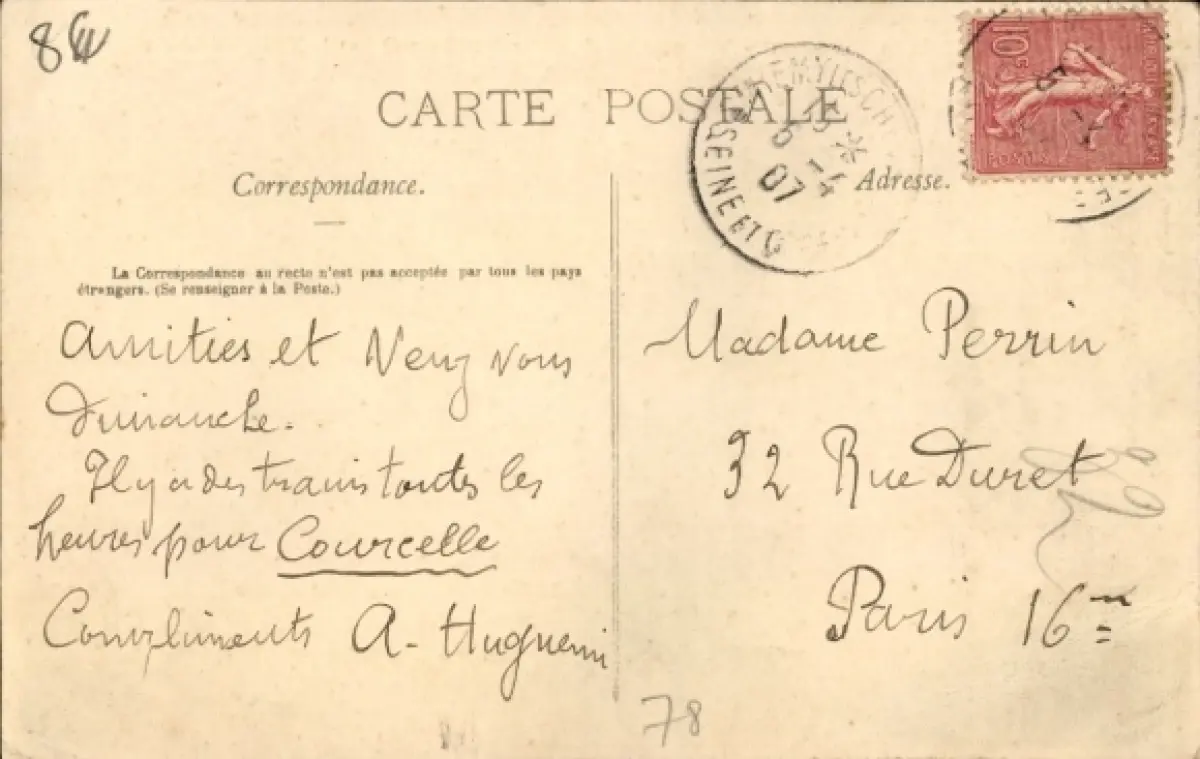 CARTE POSTALE
Correspondance.
Adresse.
La Correspondance au recto n'est pas acceptée par tous les pays
étrangers. (Se renseigner à la Poste.)
Amitiés et Venez vous
Dimanche.
Il y a des trains toutes les
heures pour Courcelle
Compliments A. Huguenin
Madame Perrin
32 Rue Duret
Paris 16me
78
10c
POSTES
SEINE ET O
5 -4
07